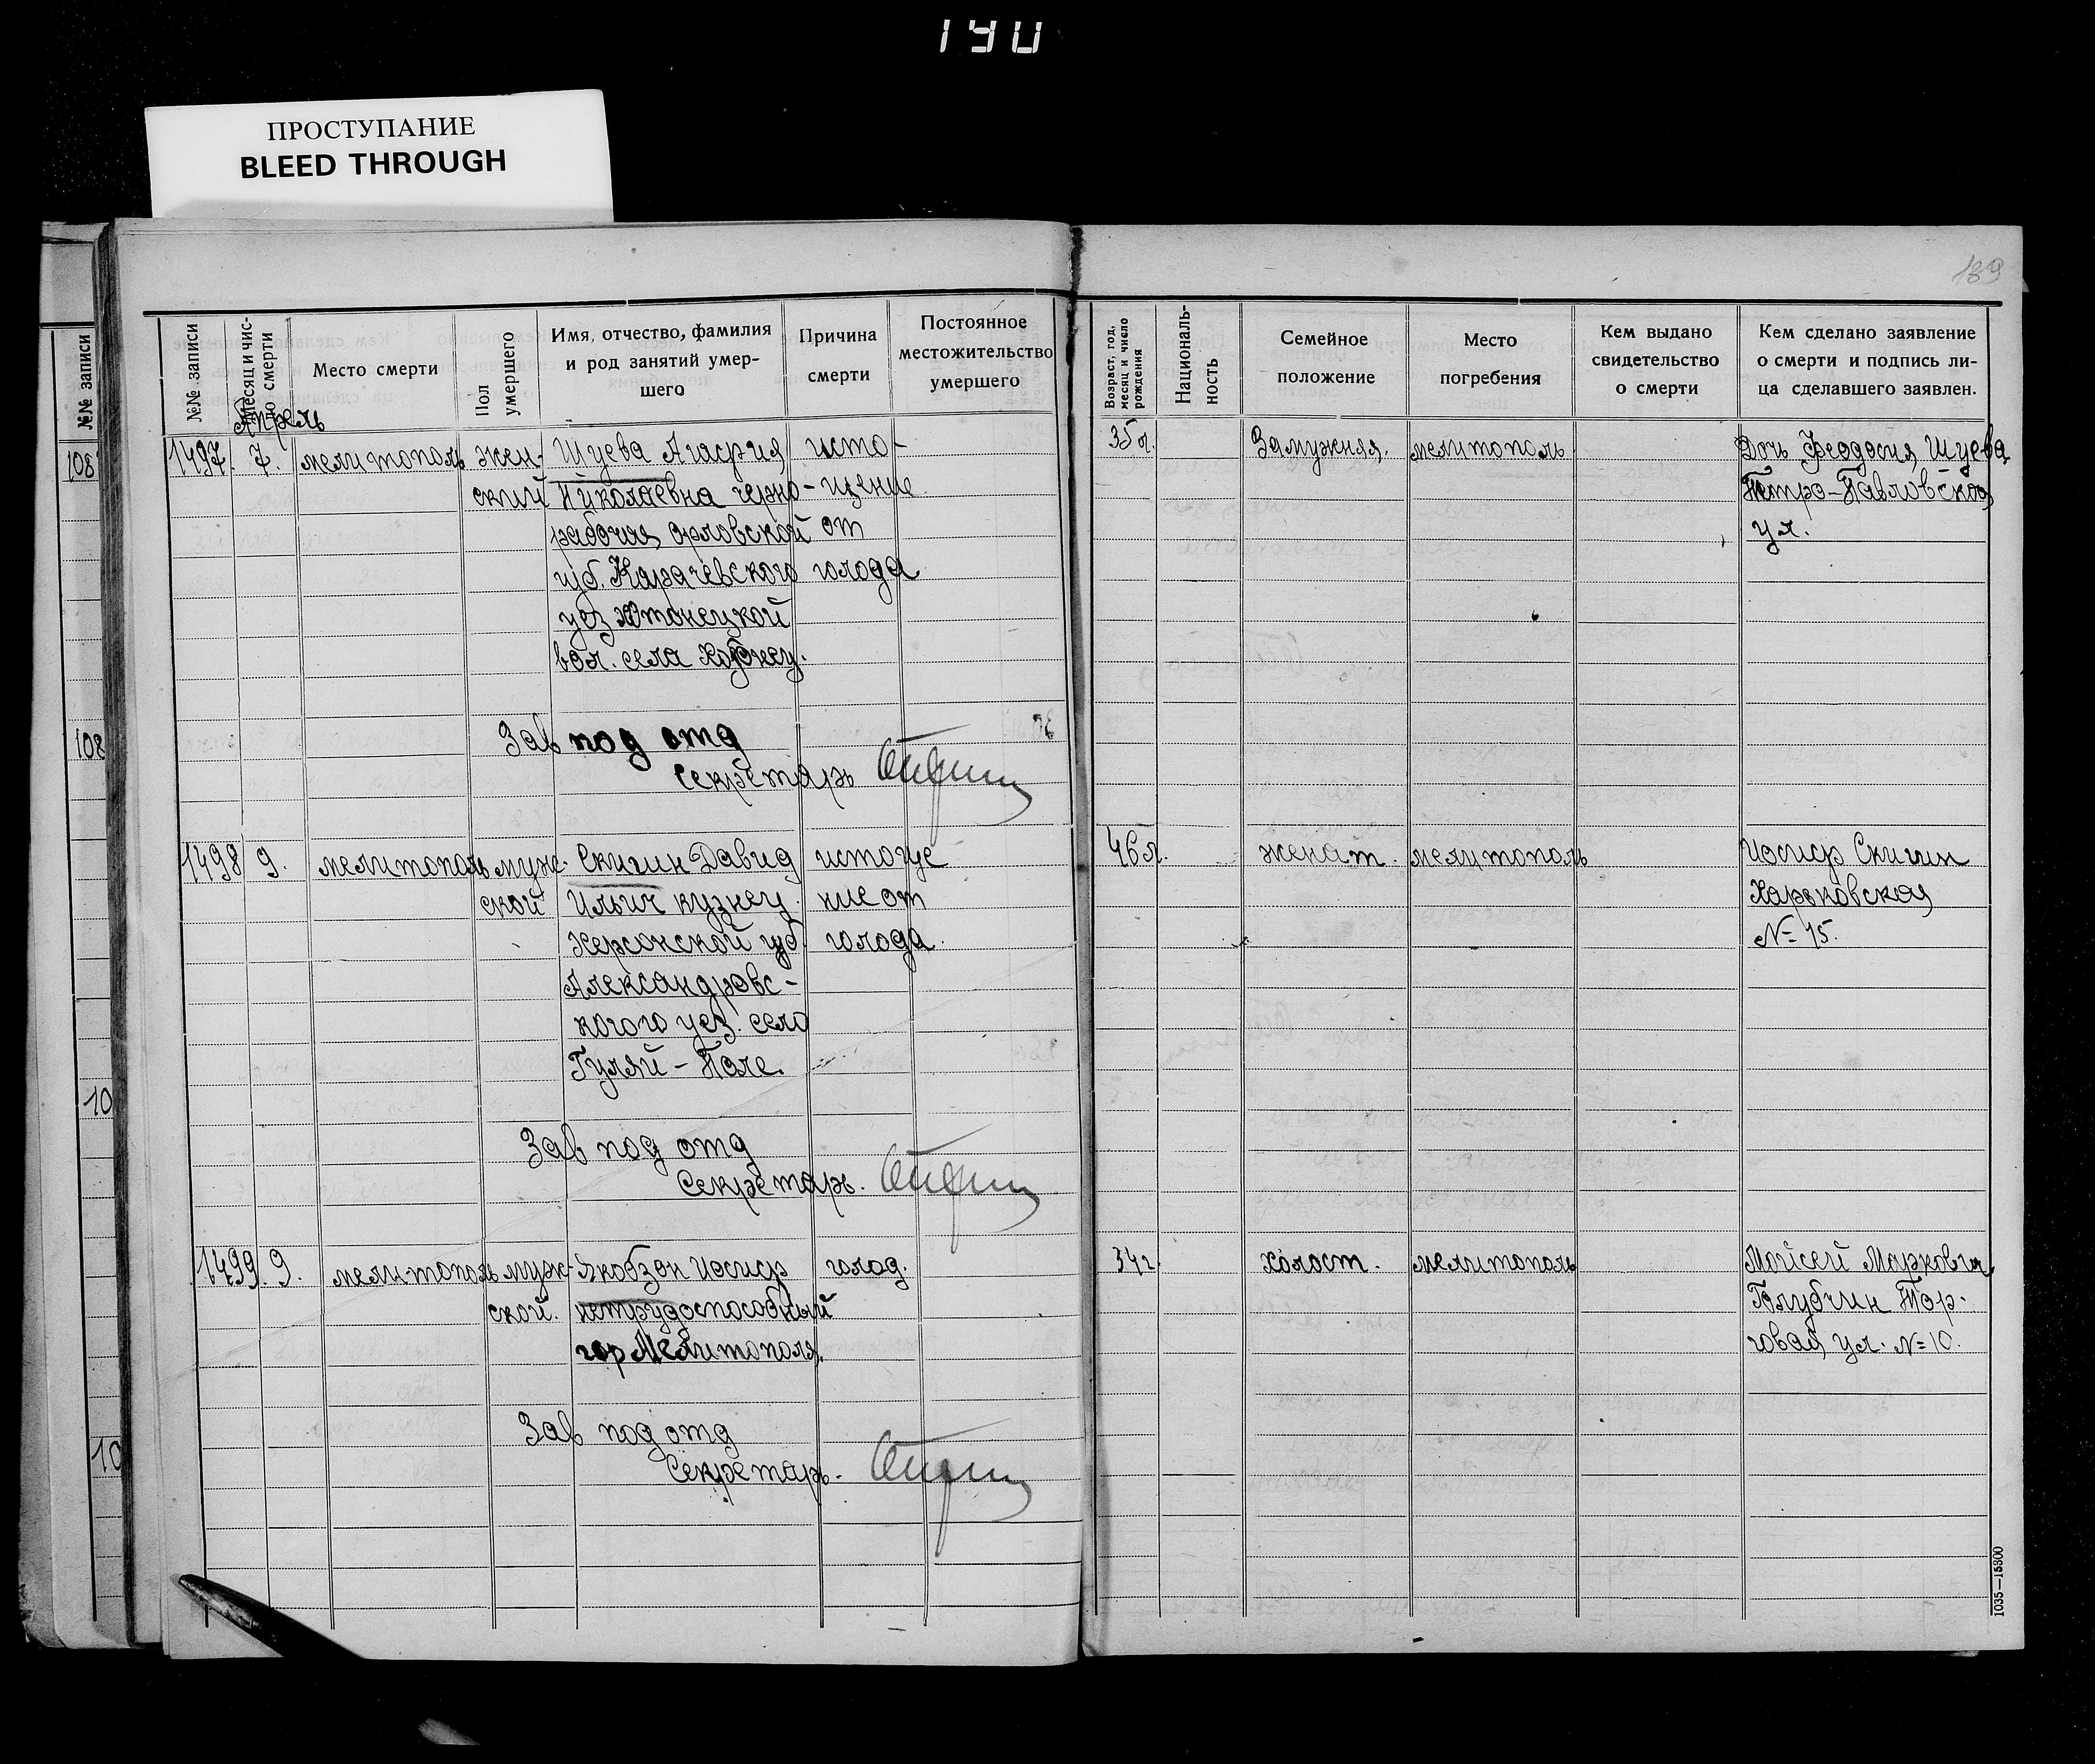 190
ПРОСТУПАНИЕ
BLEED THROUGH
139
№№ записи
108
108
10
10
№№ записи
Месяц и число смерти
Место смерти
Пол умершего
Имя, отчество, фамилия
и род занятий умер-
шего
Причина
смерти
Постоянное
местожительство
умершего
Возраст, год,
месяц и число
рождения
Националь-
ность
Семейное
положение
Место
погребения
Кем выдано
свидетельство
о смерти
Кем сделано заявление
о смерти и подпись ли-
ца сделавшего заявлен.
Апрель
1497. 7. мелитополь жен- Шуева Агафия исто- 35 л. Замужняя. мелитополь Дочь Феодосия Шуева
ский Николаевна черно- щение Петро-Павловская
рабочая орловской от ул.
губ. Карачевского голода
уез
вол. села
Зав под отд
Секретарь
1498 9. мелитополь муж- Скигин Давид истоще 46 л. женат. мелитополь Иосиф Скигин
ской Ильич кузнец ние от Харьковская
Херсонской губ. голода. № 15.
Александровс-
кого уез. село
Гуляй-Поле.
Зав под отд
Секретарь.
1499. 9. мелитополь муж- Якобзон Иосиф голод. 34 г. холост. мелитополь Мойсей Маркович
ской. нетрудоспособный Голубчин Тор-
гор Мелитополя. говая ул. № 10.
Зав под отд
Секретарь.
1035—15300